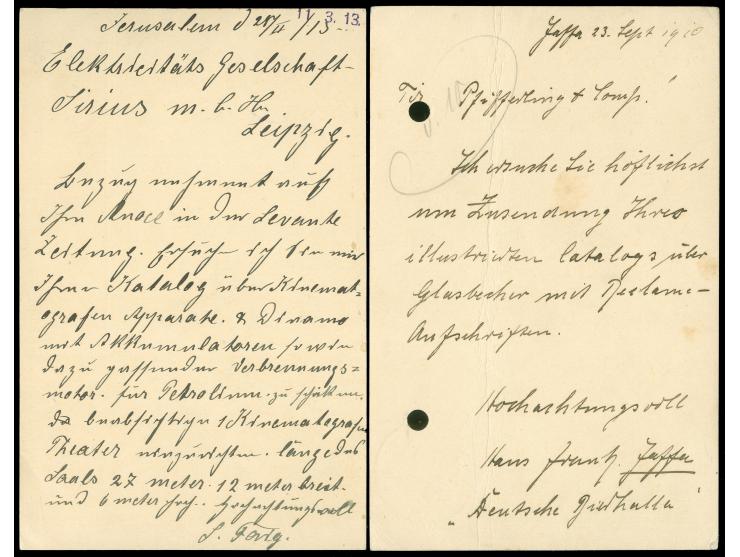 Jerusalem d 28/II/13
11.3.13.
Elektricitäts Geselschaft
Sirius m. b. H.
Leipzig.
Bezug nehment auf
Ihre Anoce in der Levante
Zeitung. Ersuche ich Sie mir
Ihren Katalog über Kinemat=
ografen Apparate. & Dinamo
mit Akkumulatoren sowie
dazu passenden Verbrennungs=
motor. für Petrolium. zu
da beabsichtige 1 Kinematografen
Theater einzurichten. länge des
Saals 27 meter. 12 meter breit.
und 6 meter hoch. Hochachtungsvoll
S.
Jaffa 23. Sept 1910
Pfifferling & Comp.!
Ich ersuche Sie höflichst
um Zusendung Ihres
illustrierten Catalogs über
Glasbecher mit Reclame-
Aufschriften.
Hochachtungsvoll
Hans Frank, Jaffa
"Deutsche Bierhalle"